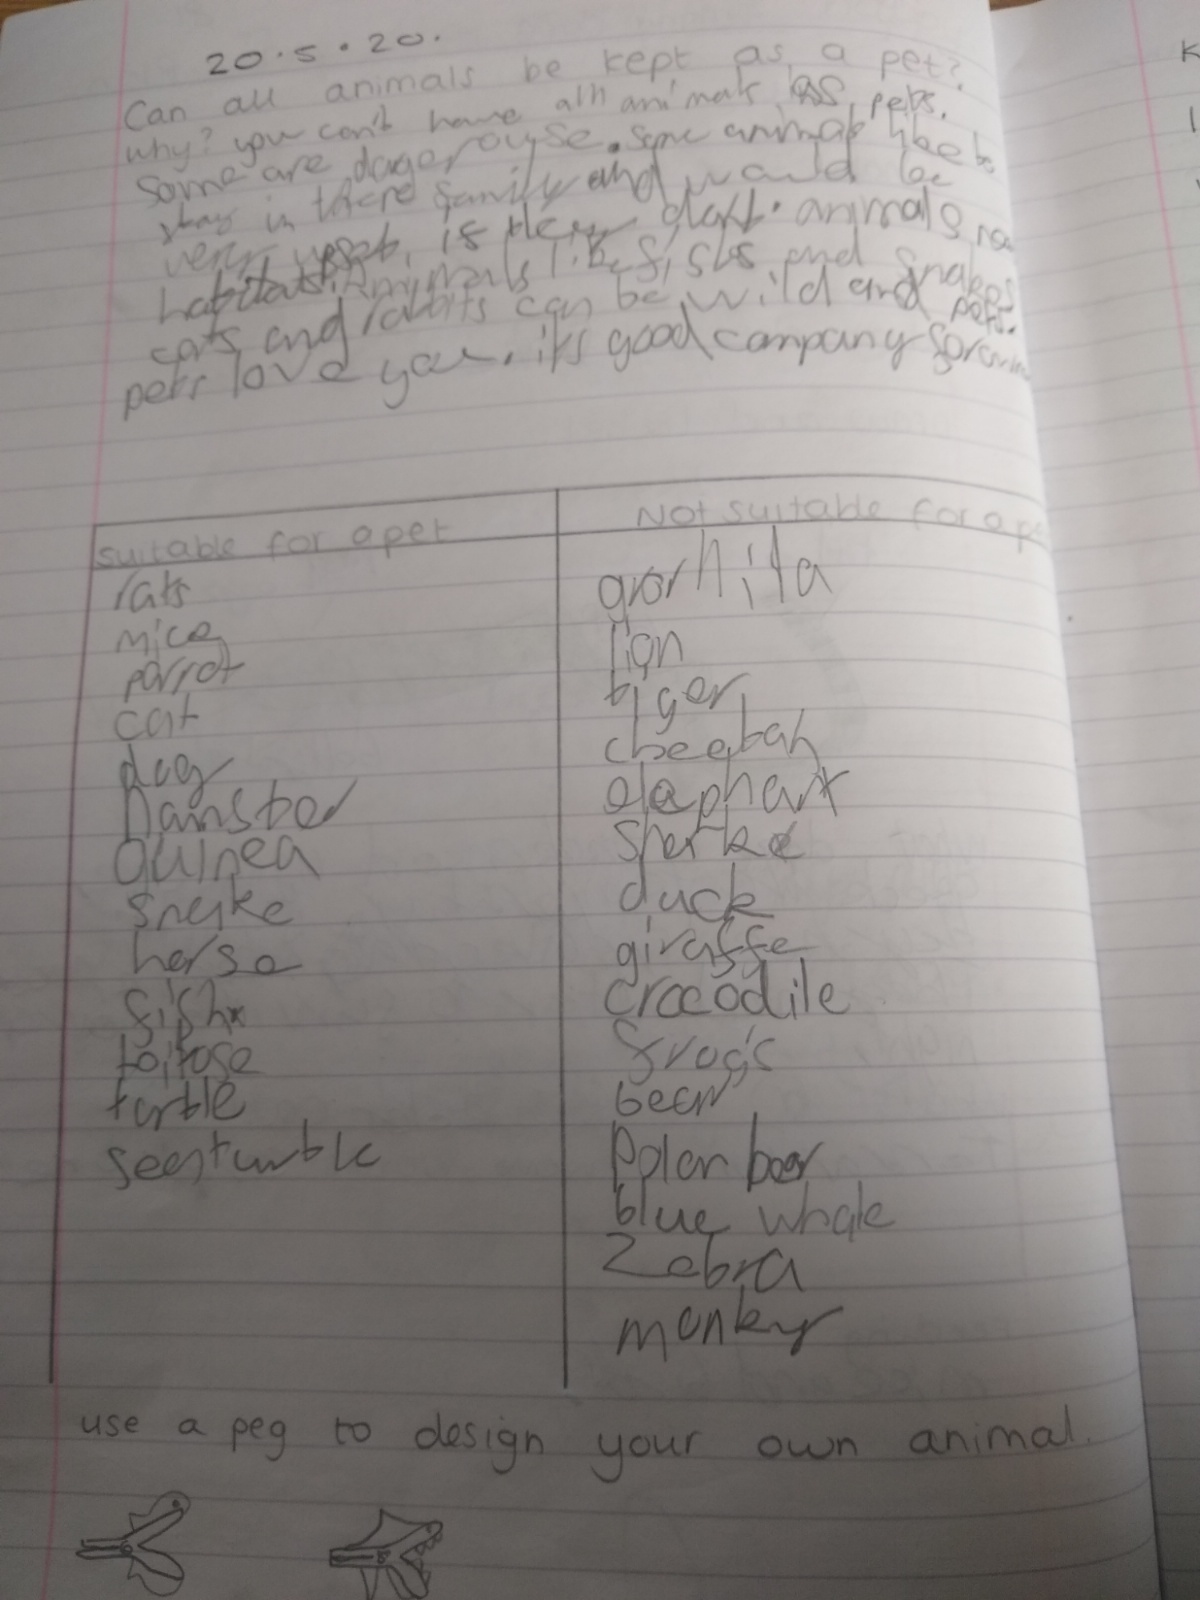 20.5.20.
Can all animals be kept as a pet?
why? you can't have all animals as pets.
Some are dagerouse. some animals like to
stay in there family and would be
very upset. is they animals
habitats. Animals like fishs and snakes
cats and rabits can be wild and pets.
pets love you. it's good company for
suitable for a pet
Not suitable for a pe
rats
mice
parrot
cat
dog
hamster
Guinea
snake
horse
fish
toitose
turtle
seaturtle
gorhila
lion
tiger
cheetah
elephant
sharke
duck
giraffe
crocodile
frog's
bear
Polar bear
blue whale
Zebra
monkey
use a peg to design your own animal.
K